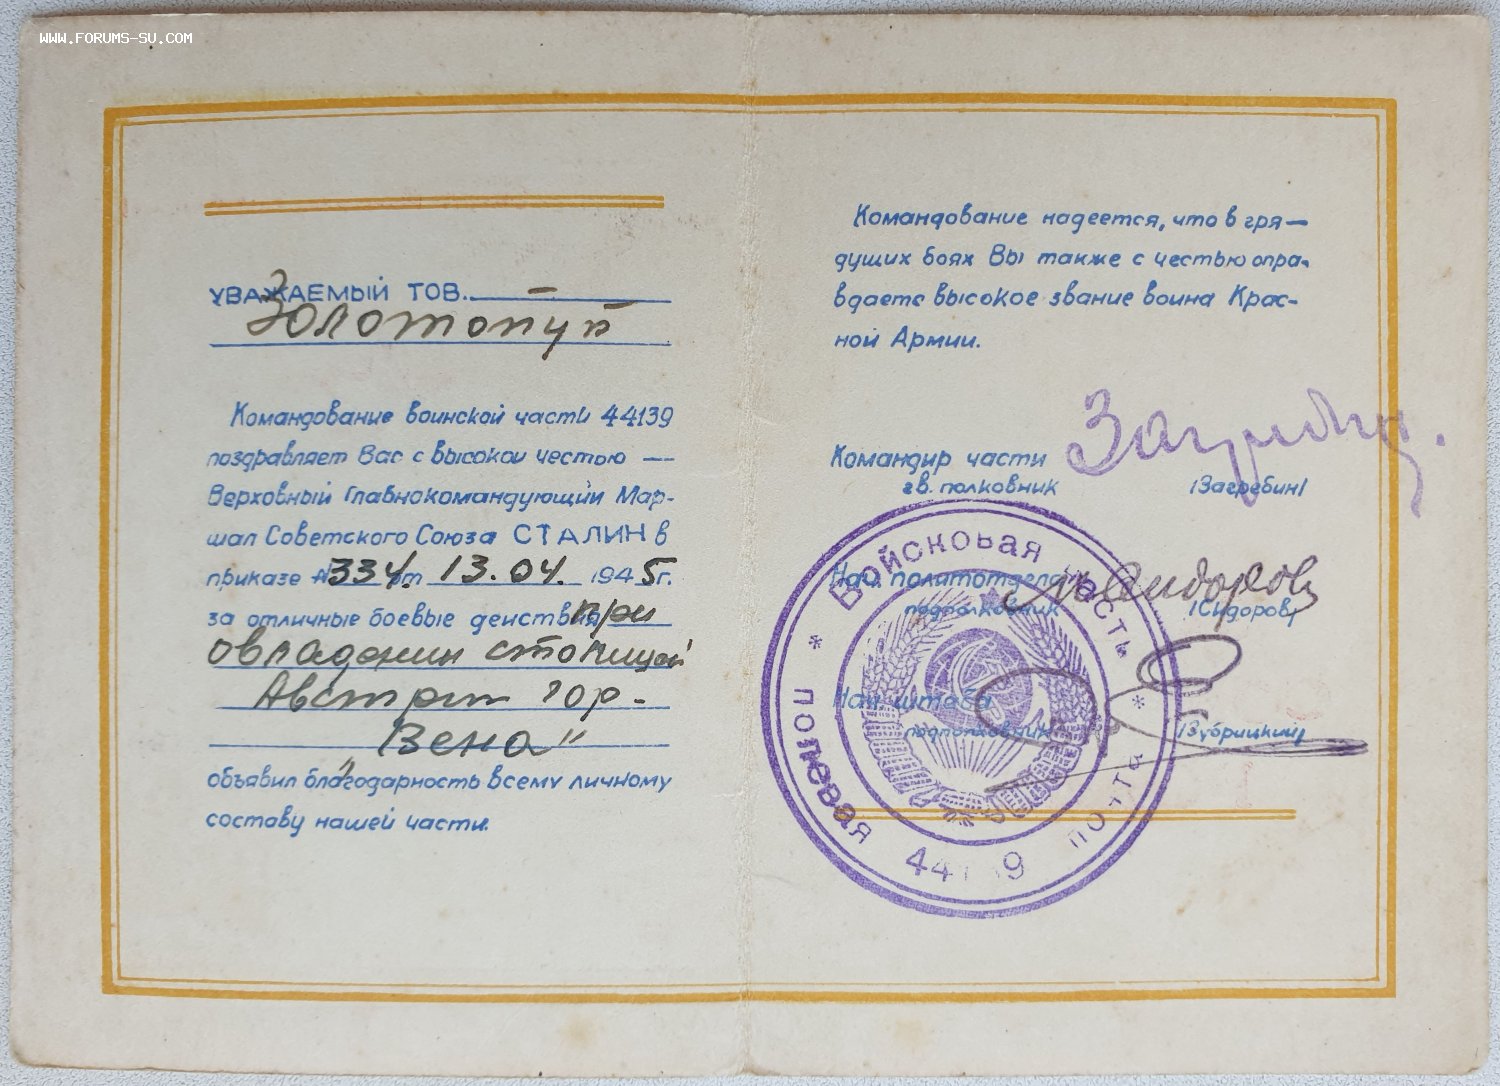 WWW.FORUMS-SU.COM
УВАЖАЕМЫЙ ТОВ. —
Золотопуп
Командование воинской части 44139
поздравляет Вас с высокой честью —
Верховный Главнокомандующий Мар-
шал Советского Союза СТАЛИН в
приказе № 334 от 13.04. 1945 г.
за отличные боевые действия при
овладении столицей
Австрии гор.
"Вена"
объявил благодарность всему личному
составу нашей части.
Командование надеется, что в гря—
дущих боях Вы также с честью опра-
вдаете высокое звание воина Крас-
ной Армии.
Командир части
гв. полковник /Загребин/
Нач. политотдела
подполковник /Сидоров/
Нач. штаба
подполковник /Зубрицкий/
Войсковая часть
* полевая почта *
44139